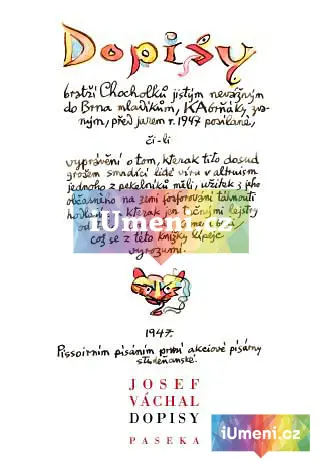 Dopisy
bratří Chocholků jistým nevážným
do Brna mladíkům, KAbrňáky zva-
ným, před jarem r. 1947 posílané,
či-li
vyprávění o tom, kterak tito dosud
grošem smrdící lidé víru v altruism
jednoho z pekelníků měli, užitek z jeho
občasného na zemi fosforování
kterak jen
což se z této knížky lépeje
vyrozumí.
iUmeni.cz
1947.
Pissoirním písáním první akciové písárny
studeňanské.
JOSEF
VÁCHAL
DOPISY
PASEKA
iUmeni.cz